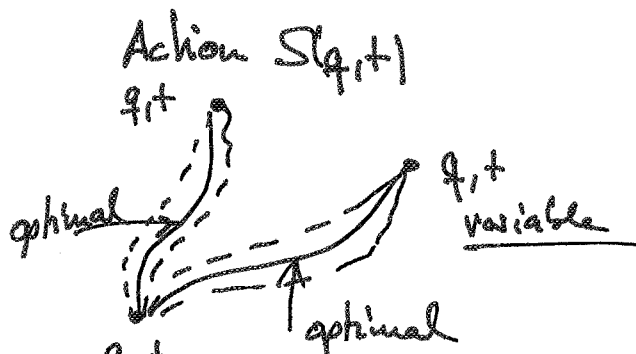 Action S(q,t)
q,t
q,t
optimal
variable
optimal